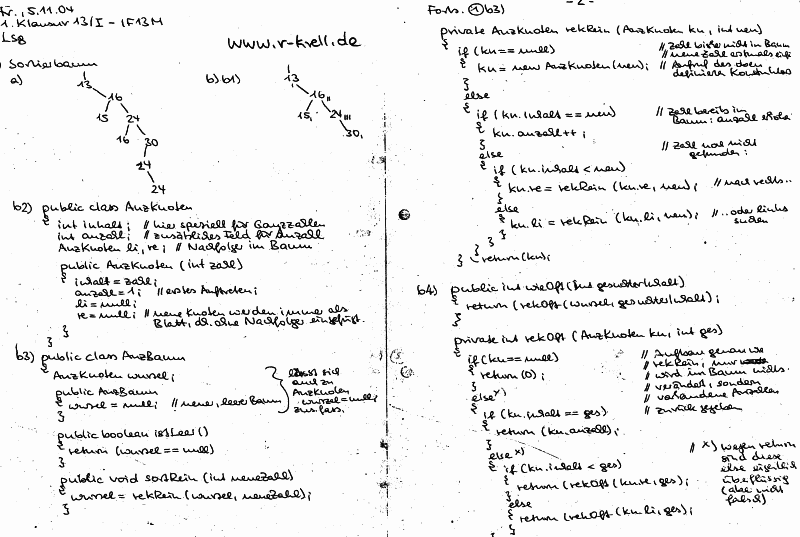 Kr., 5.11.04
1. Klausur 13/I - IF13M
Lsg
www.r-krell.de
Sortierbaum
a)
13
16
15 24
16 30
24
24
b) b1)
13
16
15 24
30
b2) public class AnzKnoten
{ int inhalt; // hier speziell für Ganzzahlen
int anzahl; // zusätzliches Feld für Anzahl
AnzKnoten li, re; // Nachfolger im Baum
public AnzKnoten (int zahl)
{ inhalt = zahl;
anzahl = 1; // erstes Auftreten;
li = null;
re = null; // neue Knoten werden immer als
} // Blatt, d.h. ohne Nachfolger eingefügt.
}
b3) public class AnzBaum
{ AnzKnoten wurzel;
public AnzBaum
{ wurzel = null; // neuer, leerer Baum
}
lässt sich
auch zu
AnzKnoten
wurzel = null;
zus.fass.
public boolean istLeer()
{ return (wurzel == null)
}
public void sortRein (int neueZahl)
{ wurzel = rekRein (wurzel, neueZahl);
}
- 2 -
Forts. ① b3)
private AnzKnoten rekRein (AnzKnoten kn, int neu)
{ if (kn == null) // Zahl bisher nicht im Baum
{ kn = new AnzKnoten(neu); // Aufruf des oben
} definierten Konstruktors
else
{ if (kn.inhalt == neu) // Zahl bereits im
{ kn.anzahl++; Baum: Anzahl
}
else // Zahl noch nicht
{ if (kn.inhalt < neu) gefunden:
{ kn.re = rekRein (kn.re, neu); // nach rechts..
}
else
{ kn.li = rekRein (kn.li, neu); // ..oder links
} suchen
}
}
return(kn);
}
b4) public int wieOft (int gesuchterInhalt)
{ return (rekOft(wurzel, gesuchterInhalt);
}
private int rekOft (AnzKnoten kn, int ges)
{ if (kn == null) // Aufbau genau wie
{ return (0); // rekRein, nur
} // wird im Baum nichts
else x) // verändert, sondern
{ if (kn.inhalt == ges) // vorhandene Anzahlen
{ return (kn.anzahl); // zurück gegeben
}
else x) // x) wegen return
{ if (kn.inhalt < ges) sind diese
{ return (rekOft(kn.re, ges); else eigentlich
} überflüssig
else (aber nicht
{ return (rekOft(kn.li, ges); falsch)
}